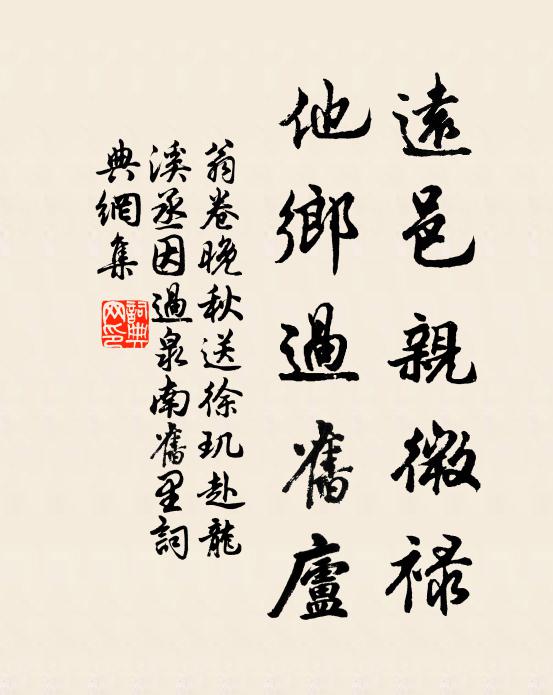 遠邑親微祿
他鄉過舊廬
翁卷晚秋送徐玑赴龍
溪丞因過泉南舊里詞
典網集
詞典
网印